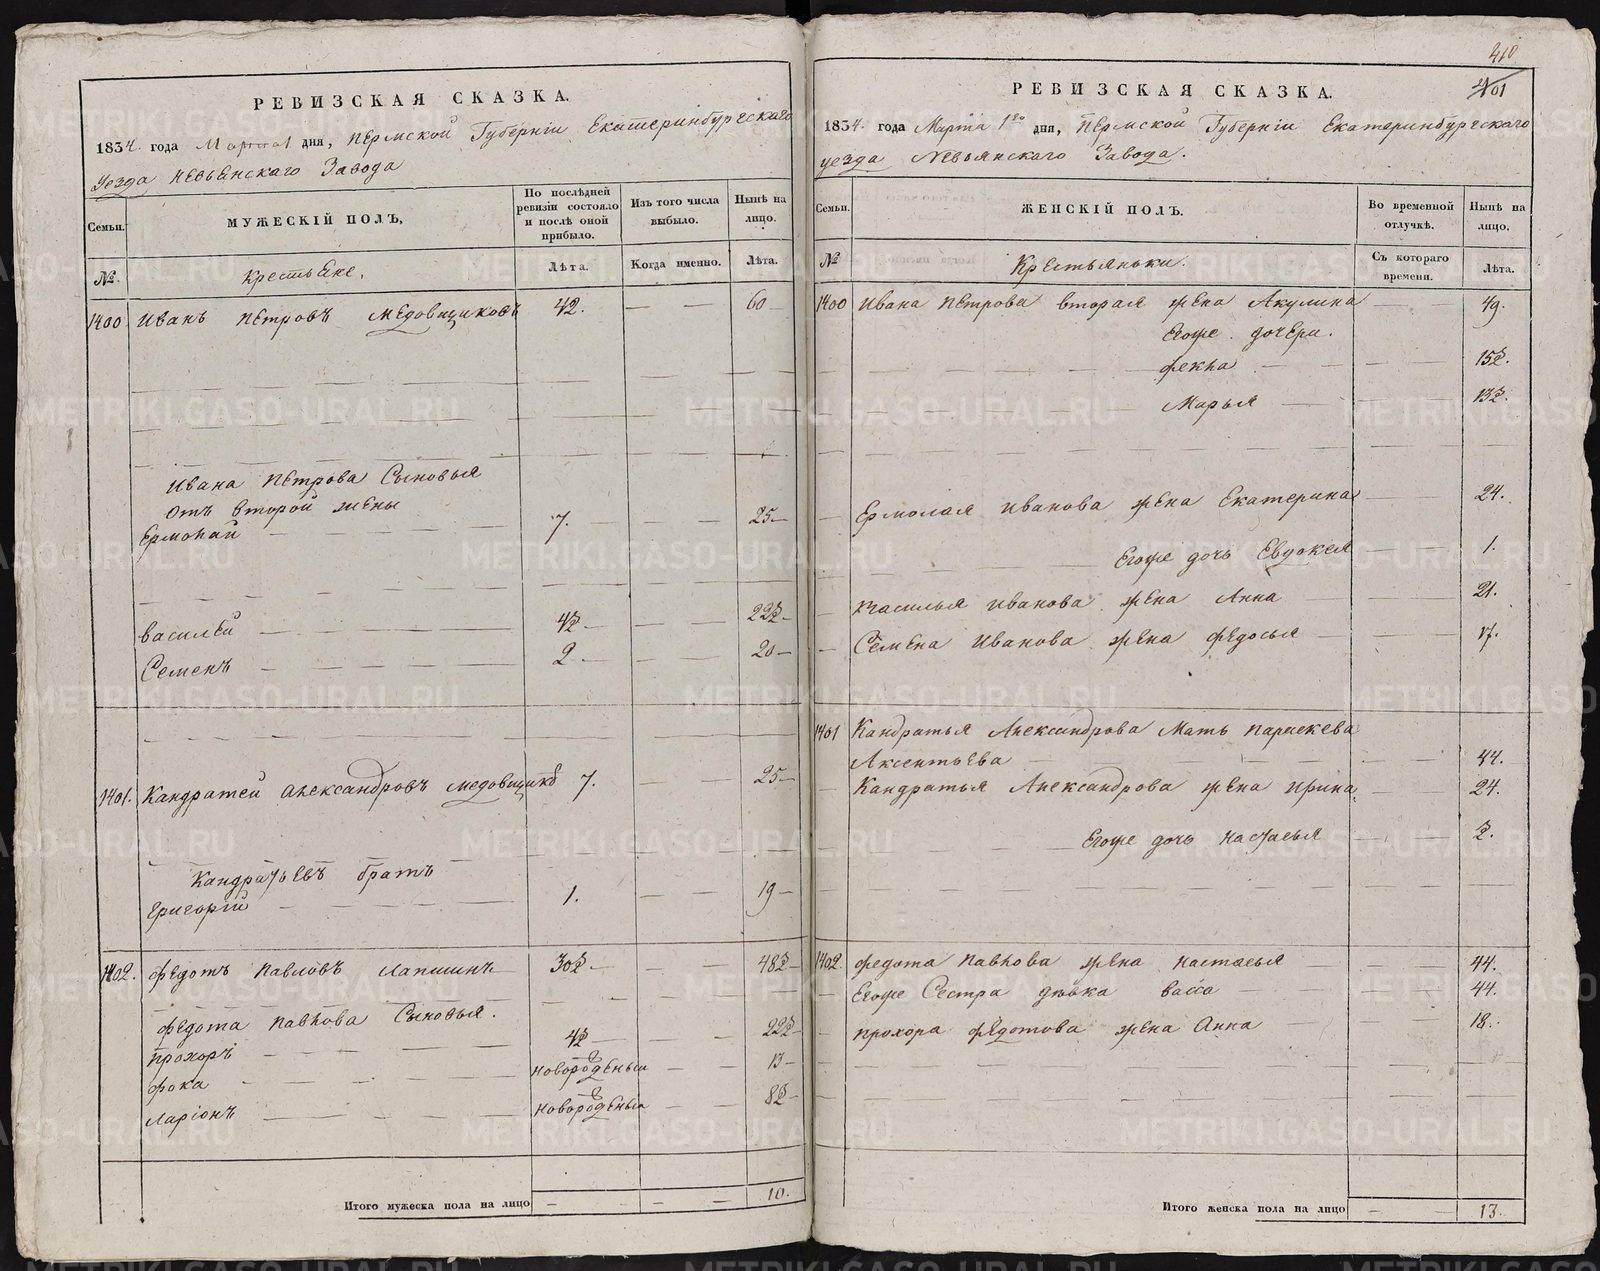 410
401
РЕВИЗСКАЯ СКАЗКА.
1834. года Марта 1 дня, Пермской Губерніи Екатеринбургскаго
уезда Невьянскаго Завода
Семьи. МУЖЕСКІЙ ПОЛЪ, По послѣдней ревизіи состояло и послѣ оной прибыло. Изъ того числа выбыло. Нынѣ на лицо.
№ крестьяне. Лѣта. Когда именно. Лѣта.
1400 Иванъ Петровъ Медовщиковъ 42. 60
Ивана Петрова Сыновья
отъ второй жены
Ермолай 7. 25
Василей 4½ 22½
Семенъ 2 20
1401. Кандратей Александровъ Медовщиковъ 7. 25
Кандратьевъ братъ
Григорій 1. 19
1402. Федотъ Павловъ Лапшинъ 30½ 48½
Федота Павлова Сыновья.
Прохоръ 4½ 22½
Фока новорожденый 13
Ларіонъ новорожденый 8½
Итого мужеска пола на лицо 10.
РЕВИЗСКАЯ СКАЗКА.
1834. года Марта 1го дня, Пермской Губерніи Екатеринбургскаго
уезда Невьянскаго Завода.
Семьи. ЖЕНСКІЙ ПОЛЪ. Во временной отлучкѣ. Нынѣ на лицо.
№ Крестьяньки. Съ котораго времени. Лѣта.
1400 Ивана Петрова вторая жена Акулина 49.
Егоже дочери.
Фекла 15½.
Марья 13½.
Ермолая Иванова жена Екатерина 24.
Егоже дочь Евдокея 1.
Василья Иванова жена Анна 21.
Семена Иванова жена Федосья 17.
1401 Кандратья Александрова Мать Параскева
Аксентьева 44.
Кандратья Александрова жена Ирина 24.
Егоже дочь Настасья ½.
1402. Федота Павлова жена Настасья 44.
Егоже Сестра дѣвка Васса 44.
Прохора Федотова жена Анна 18.
Итого женска пола на лицо 13.
METRIKI.GASO-URAL.RU